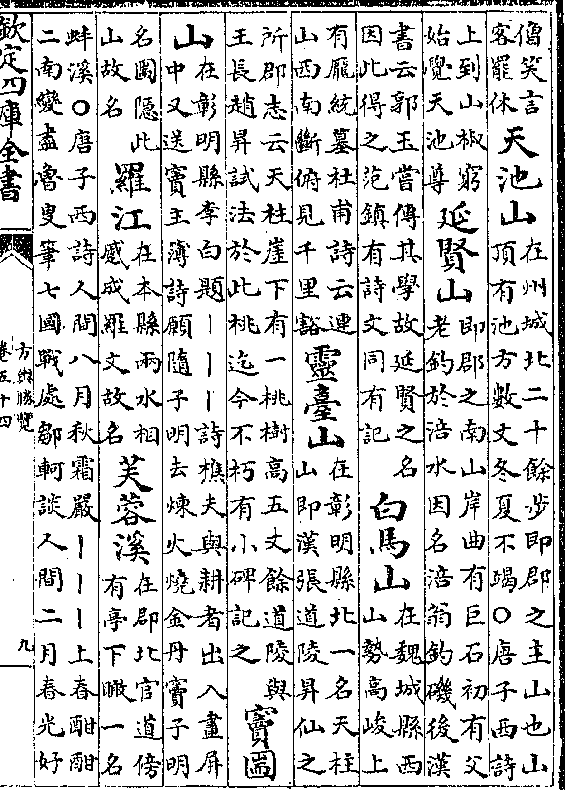 僧笑言
客罷休
天池山
在州城北二十餘步即郡之主山也山
頂有池方數丈冬夏不竭○唐子西詩
上到山椒窮
始覺天池尊
延賢山
即郡之南山岸曲有巨石初有父
老釣於涪水因名涪翁釣磯後漢
書云郭玉嘗傳其學故延賢之名
因此得之范鎮有詩文同有記
白馬山
在魏城縣西
山勢高峻上
有龐統墓杜甫詩云連
山西南斷俯見千里豁
靈臺山
在彰明縣北一名天柱
山即漢張道陵昇仙之
所郡志云天柱崖下有一桃樹高五丈餘道陵與
王長趙昇試法於此桃迄今不朽有小碑記之
竇圌
山
在彰明縣李白題｜｜｜詩樵夫與耕者出入畫屏
中又送竇主簿詩願隨子明去煉火燒金丹竇子明
名圌隱此
山故名
羅江
在本縣兩水相
蹙成羅文故名
芙蓉溪
在郡北官道傍
有亭下瞰一名
蚌溪○唐子西詩人間八月秋霜嚴｜｜｜上春酣酣
二南變盡魯叟筆七國戰處鄒軻談人間二月春光好
欽定四庫全書
方輿勝覽
卷五十四
九